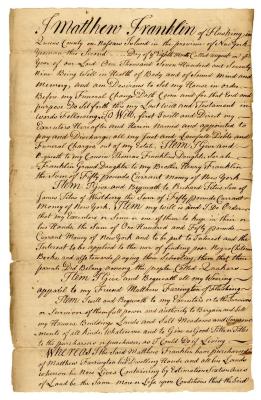 I Matthew Franklin of Flushing in
Queens County on Nassau Island in the province of New York
Yeoman this Second Day of the Month called August in the
Year of our Lord One Thousand Seven Hundred and Seventy
Nine Being Well in Health of Body and of Sound Mind and
Memory, and am Desirous to Set my House in order
Before my Funeral Change Doth Come and for that End and
purpose Do Set forth this my Last Will and Testament in
words following. I Will, first I will and Direct my
Executors Hereafter and Herein Named and appointed to
pay and Discharge all my Just and Lawfull Debts and
Funeral Charges out of my Estate. Item. I Give and
Bequeath to my Cousin Thomas Franklins Daughter Sarah
Franklin Grand Daughter to my Brother Henry Franklin
the Sum of Fifty pounds Currant money of New York
Item I Give and Bequeath to Richard Titus Son of
James Titus of Westbury the Sum of Fifty pounds Currant
Money of New York. Item my will is and I do Order
that my Executors or Some or one of them to keep in their or
his Hands the Sum of One Hundred and Fifty pounds
Currant Money of New York and to be put to Interest and the
Interest to be applied to the use of
Books and
Belong among the people Called Quakers
Item I Give and Bequeath all my Wearing
apparel to my Friend Matthew Farrington of Flushing
Item I will and Bequeath to my Executors or the Survivor
or Survivors of them full power and Authority to Bargain and Sell
my Houses Buildings Lands and Salt Meadows and
of all kinds Whatsoever and to Give as Good Title or Titles
to the purchaser or purchasers, as I Could Do if Living
Whereas I the Said Matthew Franklin have purchased
of Matthew Farrington his Dwelling House and all his Lands
whereon he Now Lives Containing by Estimation
of Land be the Same More or Less upon Condition that the Said